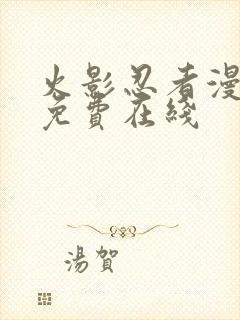 火影忍者漫
免費在綫
湯賀